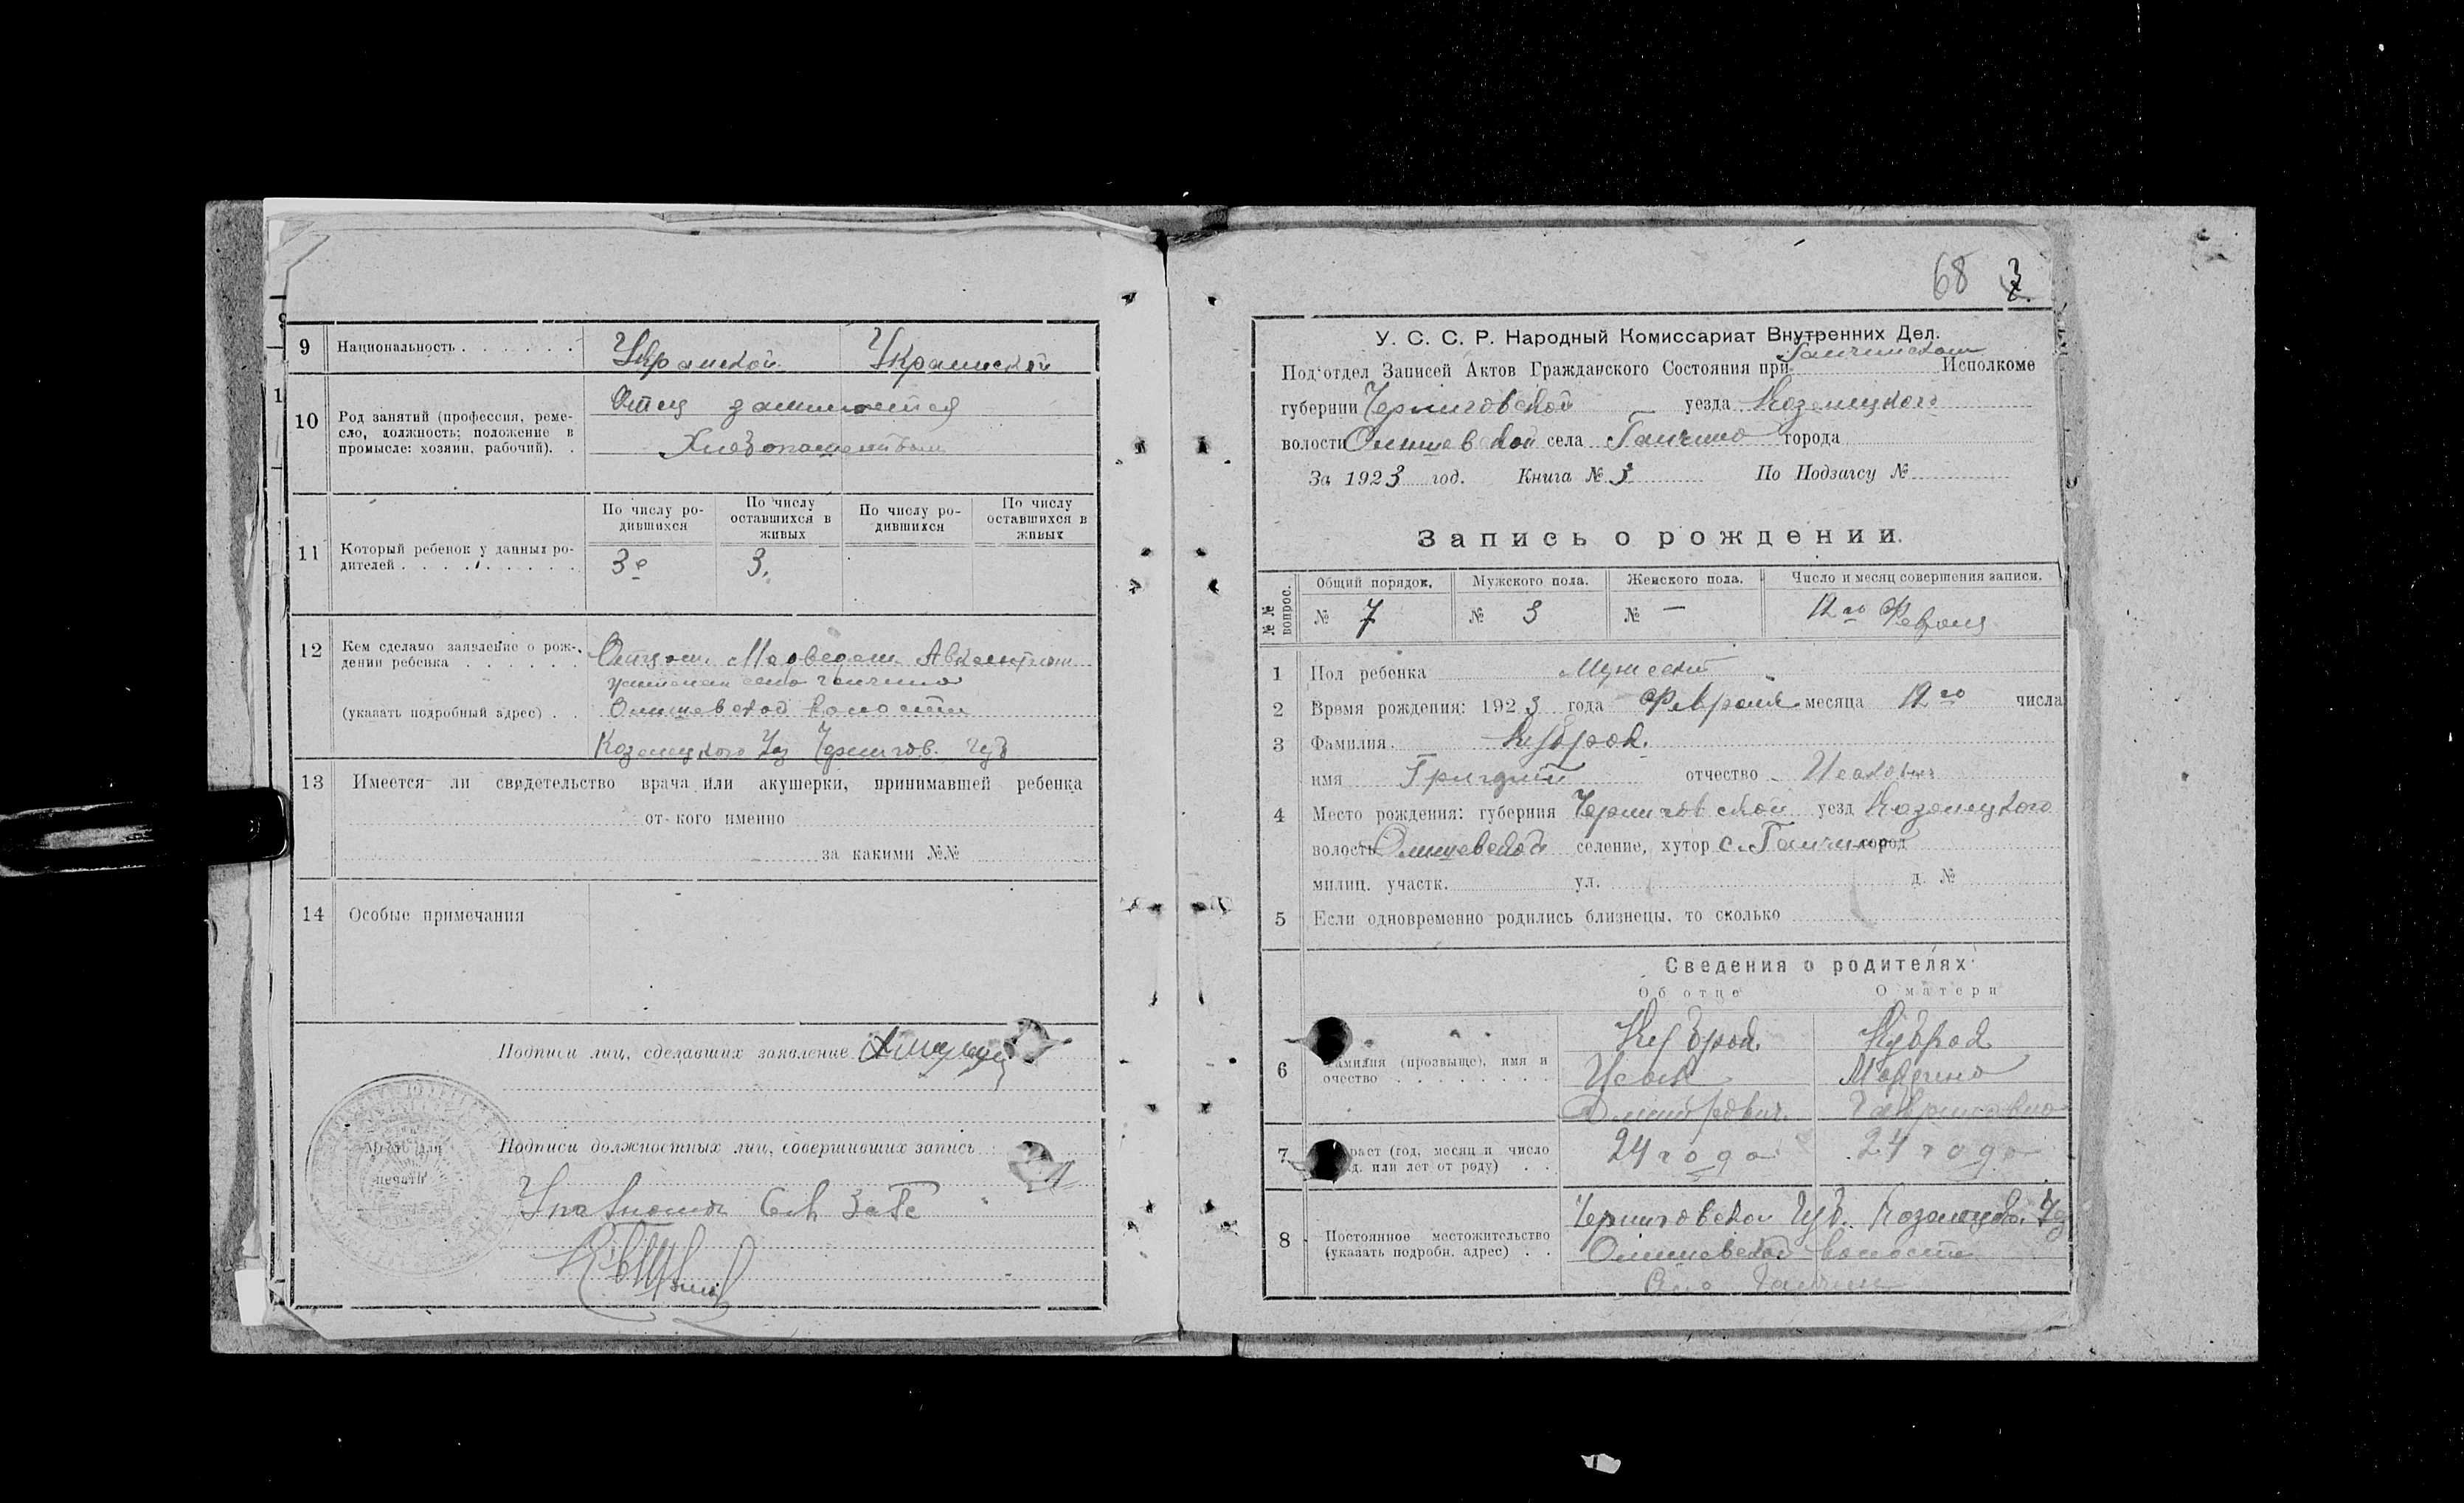 9 Национальность . . . . . . Украинской Украинской
10 Род занятий (профессия, реме-
сло, должность; положение в
промысле: хозяин, рабочий). .
Отец занимается
Хлебопашеством
11 Который ребенок у данных ро-
дителей . . . . . . . . . .
По числу ро-
дившихся
По числу
оставшихся в
живых
По числу ро-
дившихся
По числу
оставшихся в
живых
3е 3.
12 Кем сделано заявление о рож-
дении ребенка . . . . . .
(указать подробный адрес) . .
Отцом Медведем
села Ганчино
Олишевской волости
Козелецкого Уез Чернигов. Губ
13 Имеется ли свидетельство врача или акушерки, принимавшей ребенка
от кого именно
за какими №№
14 Особые примечания
Подписи лиц, сделавших заявление
Место для
печати
Подписи должностных лиц, совершивших запись
68 3
У. С. С. Р. Народный Комиссариат Внутренних Дел.
Под'отдел Записей Актов Гражданского Состояния при Ганчинском Исполкоме
губернии Черниговской уезда Козелецкого
волости Олишевской села Ганчино города
За 1923 год. Книга № 3 По Подзагсу №
Запись о рождении.
№№ вопрос.
Общий порядок. Мужского пола. Женского пола. Число и месяц совершения записи.
№ 7 № 3 № — 12го Февраля
1 Пол ребенка Мужской
2 Время рождения: 1923 года Февраля месяца 12го числа
3 Фамилия Кудрок.
имя Григорий отчество Исакович
4 Место рождения: губерния Черниговской уезд Козелецкого
волость Олишевской селение, хутор с. Ганчино город
милиц. участк. ул. д. №
5 Если одновременно родились близнецы, то сколько
Сведения о родителях
Об отце О матери
6 Фамилия (прозвыще), имя и
очество . . . . . . . .
7 раст (год, месяц и число
д. или лет от роду) . .
24 года 24 года
8 Постоянное местожительство
(указать подробн. адрес) . .
Черниговской Губ. Козелецкого Уез
Олишевской волости
Село Ганчино